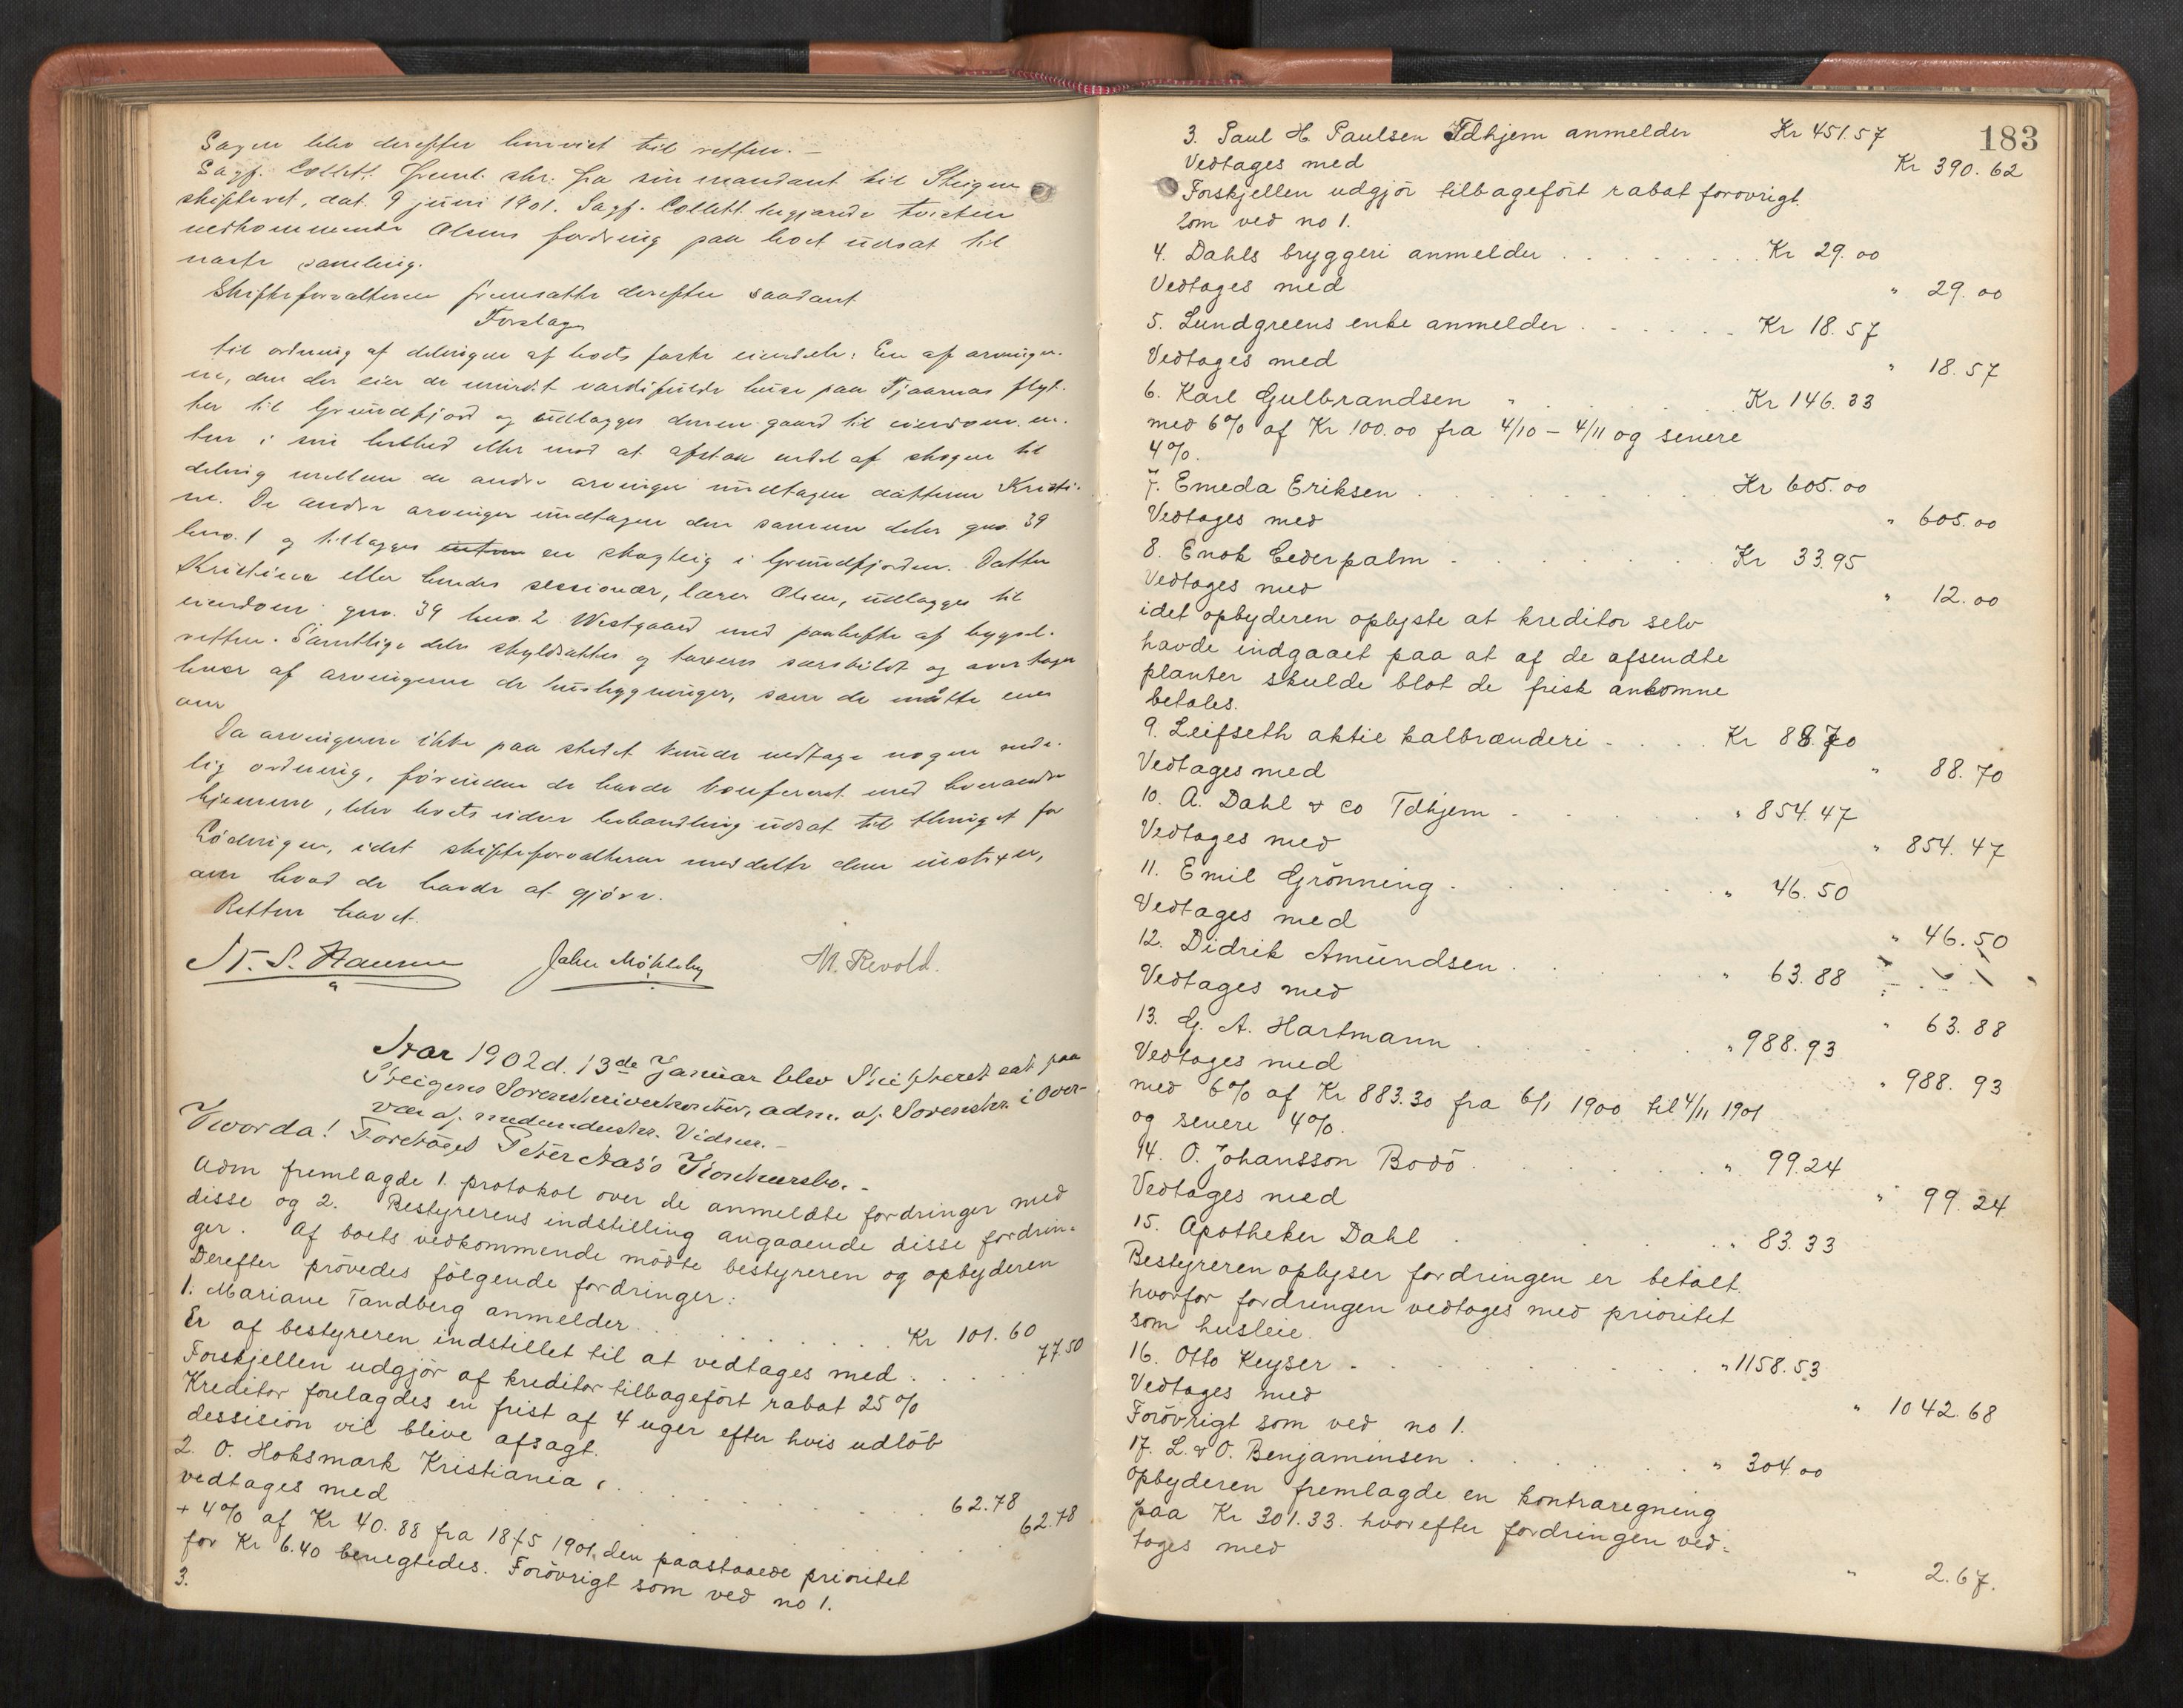 Sagen blev derefter henvist til retten.—
Sagf. Collett freml. skr. fra sin mandant til Steigen
skifteret, dat. 9 juni 1901. Sagf. Collett begjærede tvisten
vedkommende Olsens fordring paa boet udsat til
næste samling.
Skifteforvalteren fremsatte derefter saadant
Forslag
til ordning af delingen af boets faste eiendele: En af arvinger-
ne, den der eier de mindst værdifulde huse paa Tjaarnas flyt-
ter til Grundfjord og udlægges denne gaard til eiendom en-
ten i sin helhed eller mod at afstaa endel af skogen til
deling mellem de andre arvinger undtagen datteren Kristi-
ne. De andre arvinger undtagen den samme deler gno. 39
bno. 1 og tillægges en skogteig i Grundfjorden. Datter
Kristine eller hendes sessionær, lærer Olsen, udlægges til
eiendom gno. 39 bno. 2 Westgaard med paahefte af bygsel-
retten. Samtlige dele skyldsættes og taxeres særskildt og overtager
hver af arvingerne de husbygninger, som de måtte enes
om
Da arvingerne ikke paa stedet kunde vedtage nogen ende-
lig ordning, förinden de havde konfereret med hverandre
hjemme, blev boets videre behandling udsat til thinget for
Lödingen, idet skifteforvalteren meddelte dem instrux,
om hvad de havde at gjöre.
Retten hævet.
M. Revold.
Aar 1902 d. 13de Januar blev Skifteret sat paa
Steigens Sorenskriverkontor, adm. af Sorenskr. i Over-
vær af medunderskr. Vidner.—
Hvorda! Foretoges Peter Aas's Konkursbo.—
Adm fremlagde 1. protokol over de anmeldte fordringer med
disse og 2. Bestyrerens indstilling angaaende disse fordrin-
ger. Af boets vedkommende mödte bestyreren og opbyderen
Derefter prövedes fölgende fordringer:
1. Mariane Tandberg anmelder . . . Kr 101.60
Er af bestyreren indstillet til at vedtages med . . . 77.50
Forskjellen udgjör af kreditor tilbagefört rabat 25%
Kreditor forelagdes en frist af 4 uger efter hvis udlöb
dessision vil blive afsagt.
2. O. Hoksmark Kristiania . . . 62.78
vedtages med . . . 62.78
+ 4% af Kr 40.88 fra 18/5 1901, den paastaaede prioritet
for Kr 6.40 benegtedes. Forövrigt som ved no 1.
3.
183
3. Paul H. Paulsen Tdhjem anmelder Kr 451.57
Vedtages med Kr 390.62
Forskjellen udgjör tilbagefört rabat forövrigt
som ved no 1.
4. Dahls bryggeri anmelder . . . Kr 29.00
Vedtages med " 29.00
5. Lundgreens enke anmelder . . . Kr 18.57
Vedtages med " 18.57
6. Karl Gulbrandsen " . . . Kr 146.33
med 6% af Kr 100.00 fra 4/10 – 4/11 og senere
4%.
7. Emeda Eriksen . . . Kr 605.00
Vedtages med " 605.00
8. Enok Cederpalm . . . Kr 33.95
Vedtages med " 12.00
idet opbyderen oplyste at kreditor selv
havde indgaaet paa at af de afsendte
planter skulde blot de frisk ankomne
betales.
9. Leifseth aktie kalbrænderi . . . Kr 88.70
Vedtages med " 88.70
10. A. Dahl & co Tdhjem . . . " 854.47
Vedtages med " 854.47
11. Emil Grönning . . . " 46.50
Vedtages med " 46.50
12. Didrik Amundsen . . . " 63.88
Vedtages med " 63.88
13. G. A. Hartmann . . . " 988.93
Vedtages med " 988.93
med 6% af Kr 883.30 fra 6/1 1900 til 4/11 1901
og senere 4%.
14. O. Johansson Bodö . . . " 99.24
Vedtages med " 99.24
15. Apotheker Dahl . . . " 83.33
Bestyreren oplyser fordringen er betalt
hvorfor fordringen vedtages med prioritet
som husleie.
16. Otto Keyser . . . " 1158.53
Vedtages med " 1042.68
Forövrigt som ved no 1.
17. L. & O. Benjaminsen . . . " 304.00
Opbyderen fremlagde en kontraregning
paa Kr 301.33. hvorefter fordringen ved-
tages med " 2.67.